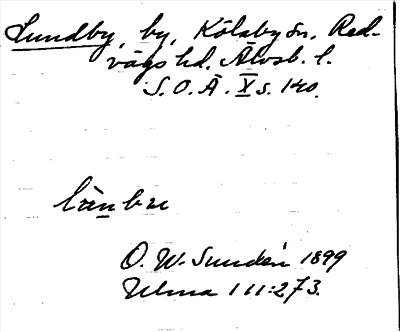 Lundby, by, Kölaby sn, Red-
vägs hd. Älvsb. l.
S.O.Ä. X s. 140.
O. W. Sundén 1899
Ulma 111:273.